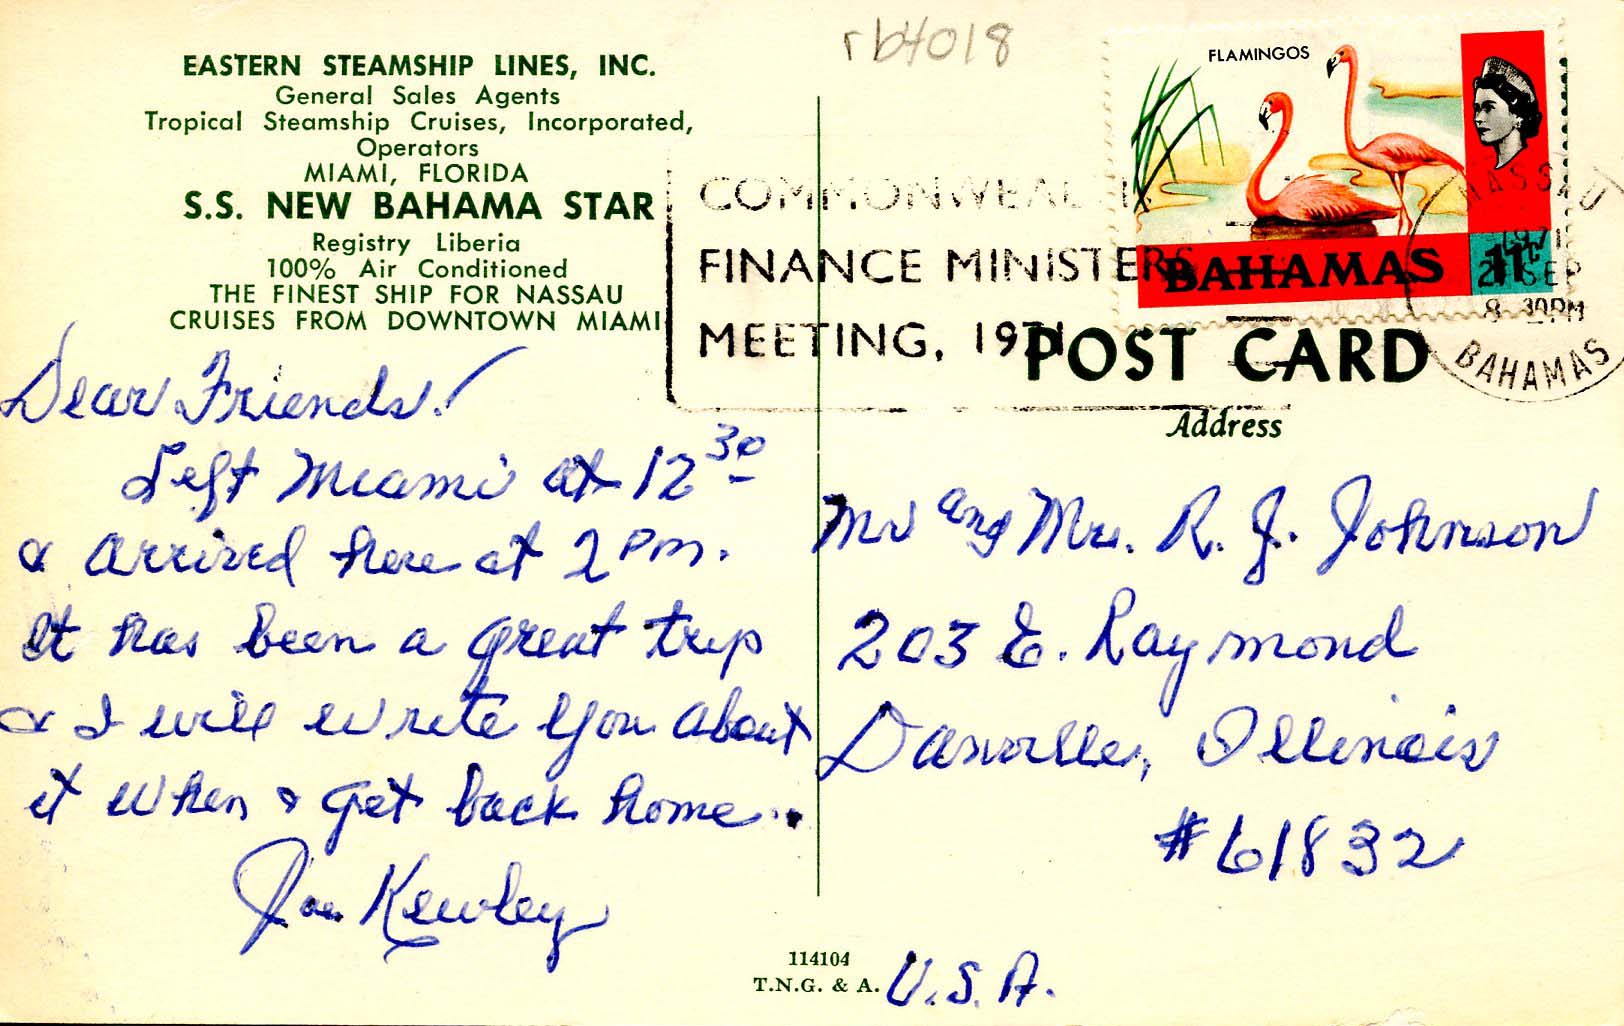 rb4018
EASTERN STEAMSHIP LINES, INC.
General Sales Agents
Tropical Steamship Cruises, Incorporated,
Operators
MIAMI, FLORIDA
S.S. NEW BAHAMA STAR
Registry Liberia
100% Air Conditioned
THE FINEST SHIP FOR NASSAU
CRUISES FROM DOWNTOWN MIAMI
Dear Friends!
Left Miami at 12 30
& arrived here at 2 PM.
It has been a great trip
& I will write you about
it when I get back home..
Joe Kewley
FLAMINGOS
BAHAMAS 11c
COMMONWEALTH
FINANCE MINISTERS
MEETING, 1971
NASSAU
1971
2 SEP
8 30PM
BAHAMAS
POST CARD
Address
Mr and Mrs. R. J. Johnson
203 E. Raymond
Danville, Illinois
#61832
U.S.A.
114104
T.N.G. & A.